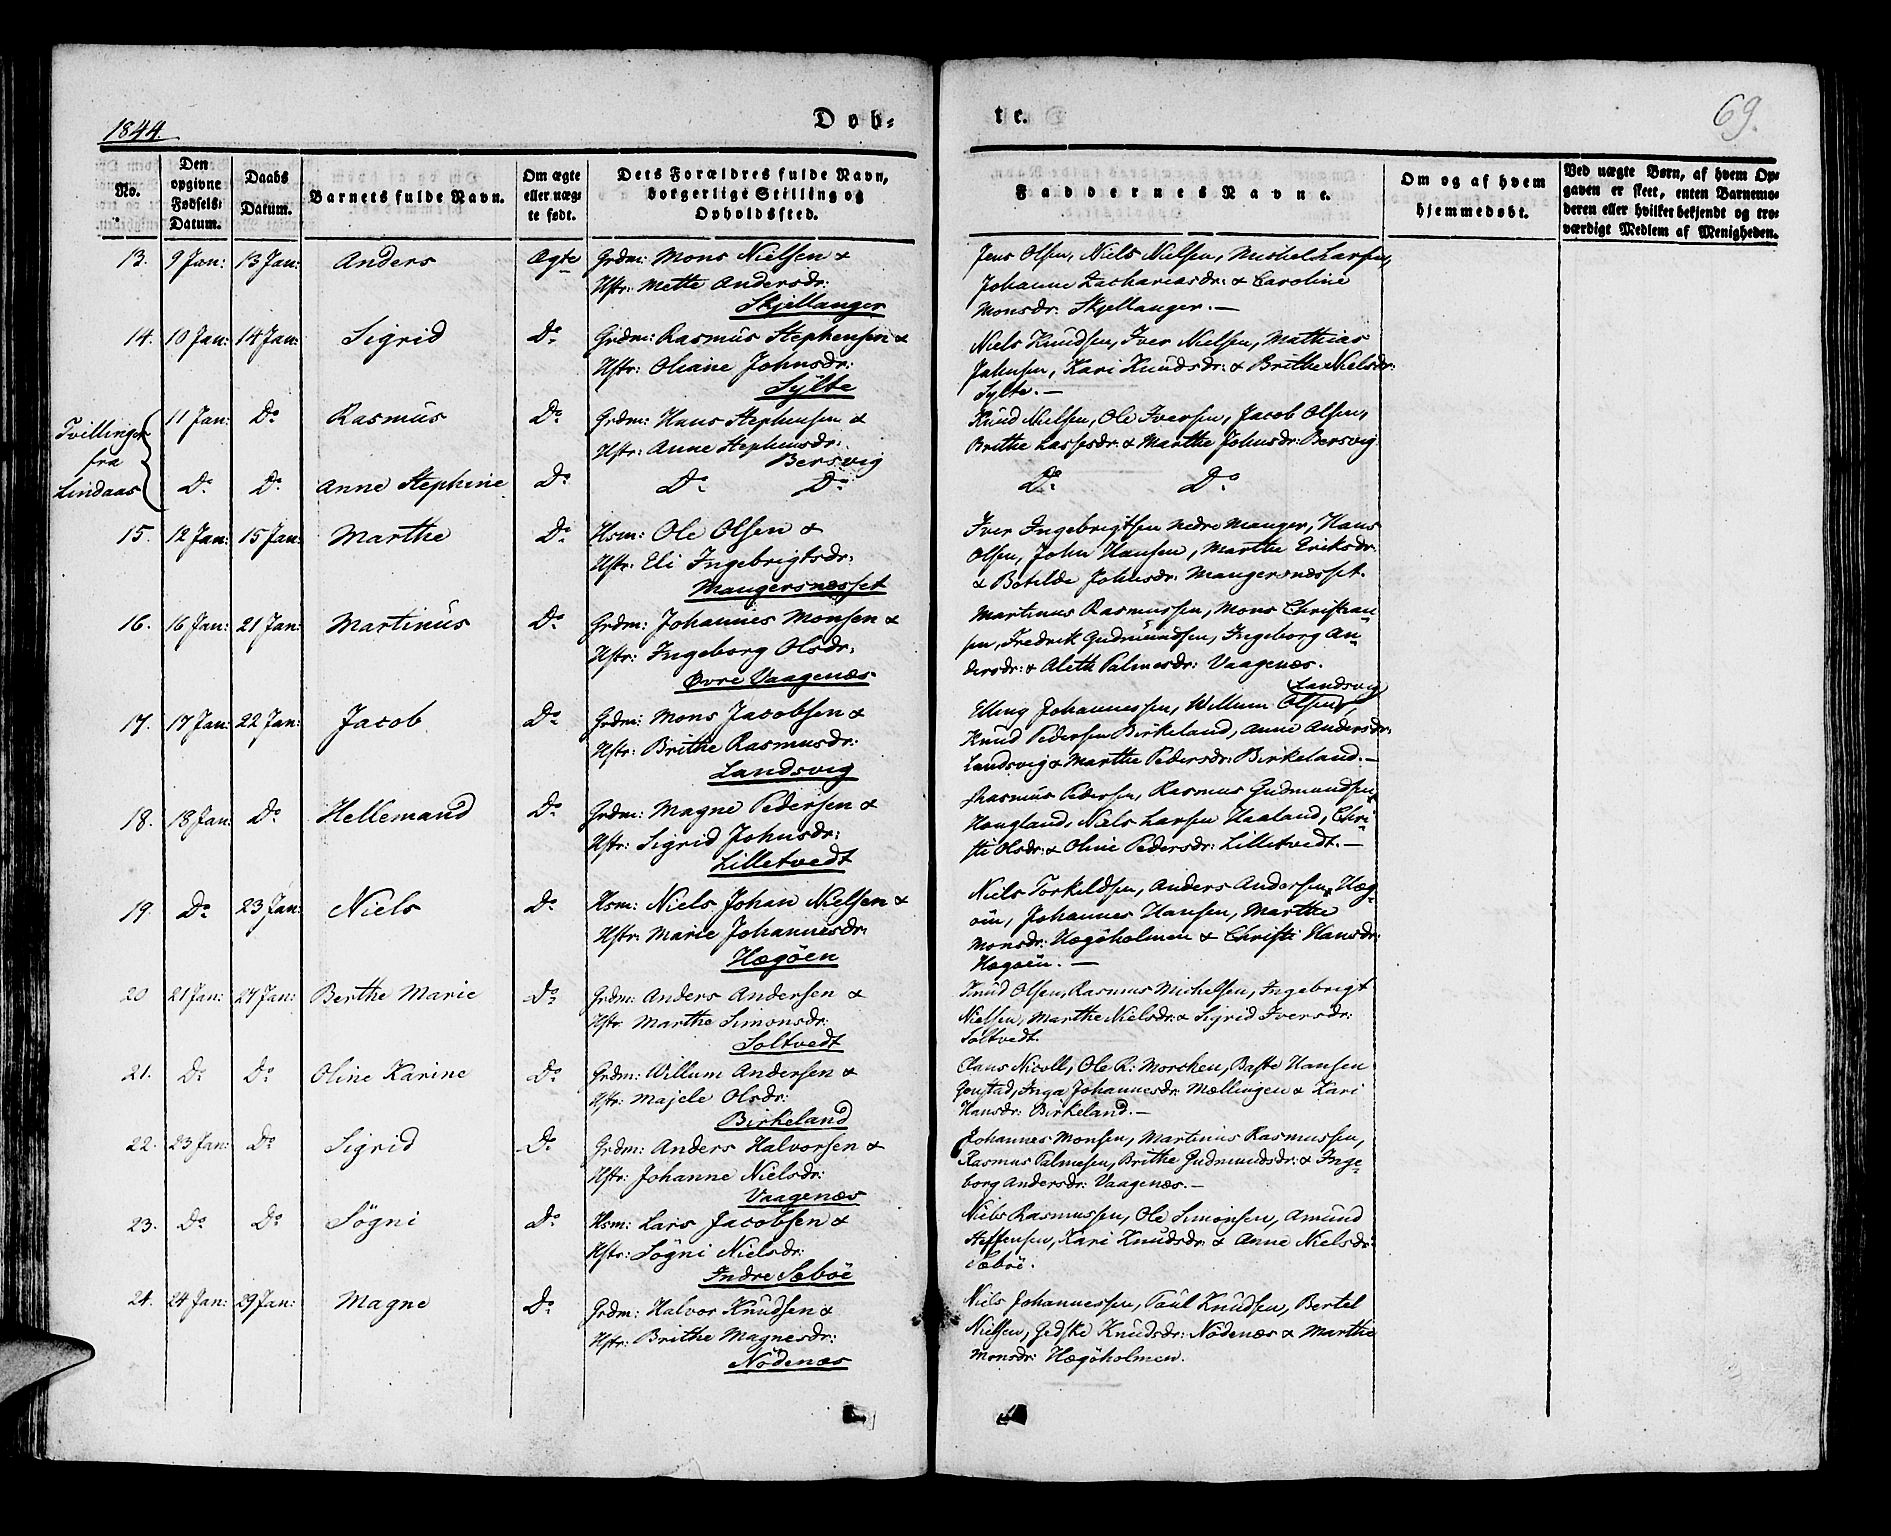 1844.
Døb-
te.
69.
No.
Den
opgivne
Fødsels-
Datum.
Daabs
Datum.
Barnets fulde Navn.
Om ægte
eller uæg-
te født.
Dets Forældres fulde Navn,
borgerlige Stilling og
Opholdssted.
Faddernes Navne.
Om og af hvem
hjemmedøbt.
Ved uægte Børn, af hvem Op-
gaven er skeet, enten Barnemo-
deren eller hvilket bekjendt og tro-
værdigt Medlem af Menigheden.
13. 9 Jan: 13 Jan: Anders Ægte Grdm: Mons Nielsen &
Hstr: Mette Andersdr:
Skjellanger
Jens Olsen, Niels Nielsen, Michel Larsen,
Johanne Zachariasdr: & Caroline
Monsdr: Skjellanger. —
14. 10 Jan: 14 Jan: Sigrid Do. Grdm: Rasmus Stephensen &
Hstr: Oliane Johnsdr:
Sylte
Niels Knudsen, Iver Nielsen, Mathias
Johnsen, Kari Knudsdr: & Brithe Nielsdr:
Sylte. —
Tvillinger
fra
Lindaas
11 Jan: Do. Rasmus Do. Grdm: Hans Stephensen &
Hstr: Anne Stephensdr:
Bersvig
Knud Nielsen, Ole Iversen, Jacob Olsen,
Brithe Lassesdr: & Marthe Johnsdr: Bersvig
Do. Do. Anne Stephine Do. Do. Do.
Do. Do.
15. 12 Jan: 15 Jan: Marthe Do. Hsm: Ole Olsen &
Hstr: Eli Ingebrigtsdr:
Mangersnæsset
Iver Ingebrigtsen nedre Manger, Hans
Olsen, John Hansen, Marthe Eriksdr:
& Botilde Johnsdr: Mangersnæsset.
16. 16 Jan: 21 Jan: Martinus Do. Grdm: Johannes Monsen &
Hstr: Ingeborg Olsdr:
Øvre Vaagenæs
Martinus Rasmussen, Mons Christian-
sen, Fredrik Gudmundsen, Ingeborg An-
dersdr: & Aleth Palmesdr: Vaagenæs.
17. 17 Jan: 22 Jan: Jacob Do. Grdm: Mons Jacobsen &
Hstr: Brithe Rasmusdr:
Landsvig
Landsvig
Elling Johannessen, Willum Olsen,
Knud Pedersen Birkeland, Anne Andersdr:
Landsvig & Marthe Pedersdr: Birkeland. —
18. 18 Jan: Do. Hellemand Do. Grdm: Magne Pedersen &
Hstr: Sigrid Johnsdr:
Lilletvedt
Rasmus Pedersen, Rasmus Gudmundsen
Hougland, Niels Larsen Haaland, Chri-
sti Olsdr: & Oline Pedersdr: Lilletvedt. —
19. Do. 23 Jan: Niels Do. Hsm: Niels Johan Nielsen &
Hstr: Marie Johannesdr:
Hægöen
Niels Torkildsen, Anders Andersen Hæg-
öen, Johannes Hansen, Marthe
Monsdr: Hægöholmen & Christi Hansdr:
Hægöen. —
20 21 Jan: 27 Jan: Berthe Marie Do. Grdm: Anders Andersen &
Hstr: Marthe Simonsdr:
Soltvedt
Knud Olsen, Rasmus Michelsen, Ingebrigt
Nielsen, Marthe Nielsdr: & Sigrid Iversdr:
Soltvedt.
21. Do. Do. Oline Karine Do. Grdm: Willum Andersen &
Hstr: Majele Olsdr:
Birkeland
Claus Nicoll, Ole R: Morcken, Baste Hansen
Inga Johannesdr: Mællingen & Kari
Hansdr: Birkeland. —
22. 23 Jan: Do. Sigrid Do. Grdm: Anders Halvorsen &
Hstr: Johanne Nielsdr:
Vaagenæs
Johannes Monsen, Martinus Rasmussen,
Rasmus Palmesen, Brithe Gudmundsdr: & Inge-
borg Andersdr: Vaagenæs. —
23. Do. Do. Sögni Do. Hsm: Lars Jacobsen &
Hstr: Sögni Nielsdr:
Indre Sæböe
Niels Rasmussen, Ole Simonsen, Amund
Steffensen, Kari Knudsdr: & Anne Nielsdr:
Sæböe.
24. 24 Jan: 29 Jan: Magne Do. Grdm: Halvor Knudsen &
Hstr: Brithe Magnesdr:
Nödenæs
Niels Johannessen, Paul Knudsen, Bertel
Nielsen, Gedske Knudsdr: Nödenæs & Marthe
Monsdr: Hægöholmen.